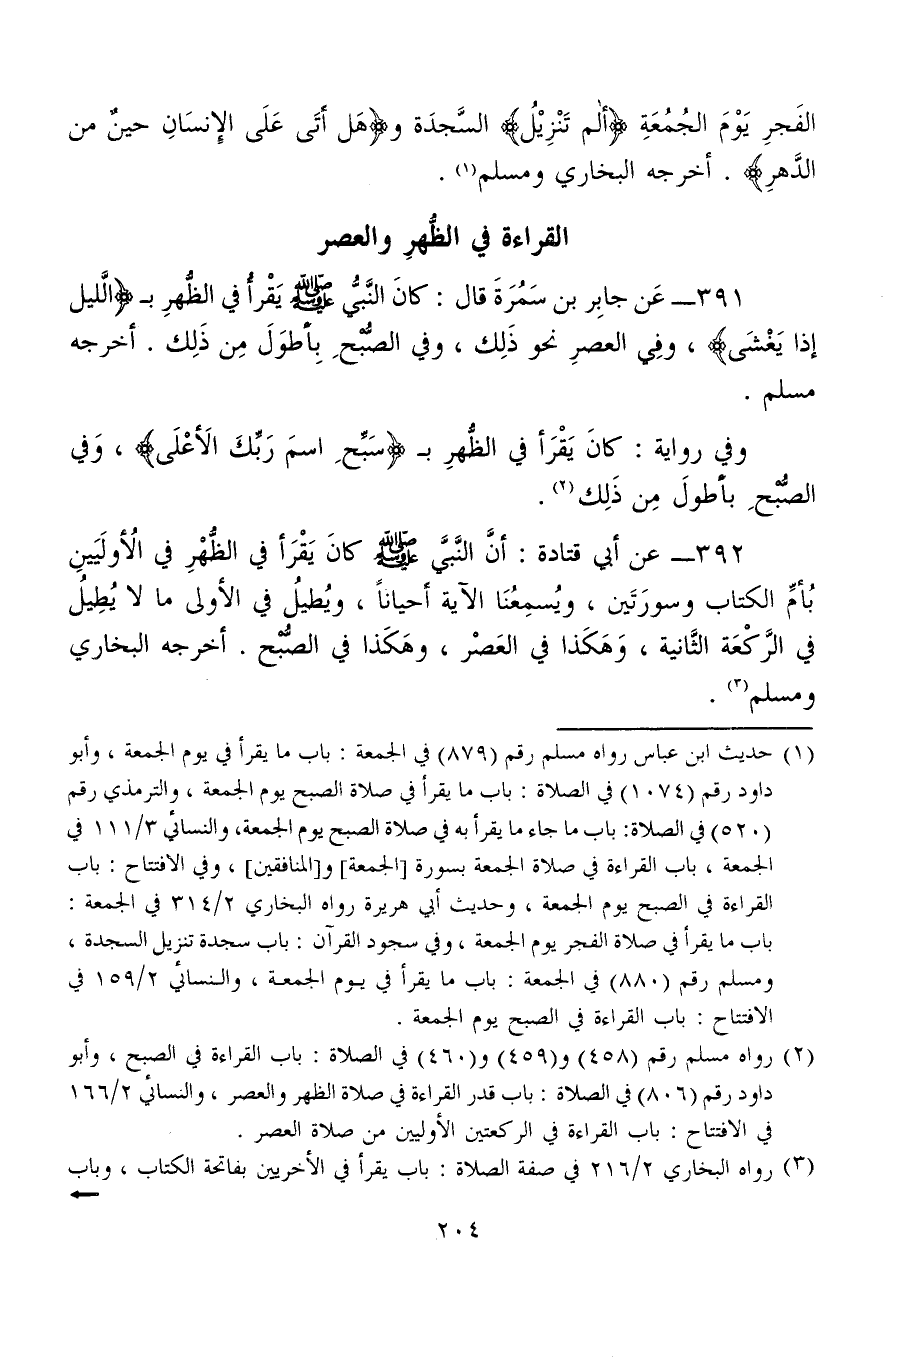 الفَجرِ يَوْمَ الجُمُعَةِ ﴿ألم تَنْزِيْلُ﴾ السَّجدَة و﴿هَل أتَى عَلَى الإنسَانِ حينٌ من
الدَّهرِ﴾ . أخرجه البخاري ومسلم(١) .
القراءة في الظُّهرِ والعصر
٣٩١ــ عَن جابِر بن سَمُرَةَ قال : كانَ النَّبيُّ ﷺ يَقْرأُ في الظُّهرِ بـ ﴿الَّليل
إذا يَغْشَى﴾ ، وفِي العصرِ نحو ذَلِك ، وفي الصُّبْحِ بِأطوَلَ مِن ذَلِك . أخرجه
مسلم .
وفي رواية : كانَ يَقْرَأ في الظُّهرِ بـ ﴿سَبِّح اسمَ رَبِّكَ الَأعْلَى﴾ ، وَفي
الصُّبْحِ بأطولَ مِن ذَلِك(٢) .
٣٩٢ــ عن أبي قتادة : أنَّ النَّبيَّ ﷺ كانَ يَقْرَأ في الظُّهْرِ في الُأولَيَينِ
بُأمِّ الكتاب وسورَتَين ، ويُسمِعُنَا الآية أحياناً ، ويُطيلُ في الأولى ما لا يُطِيلُ
في الرَّكعَة الثَّانية ، وَهَكَذا في العَصْر ، وهَكَذا في الصُّبْح . أخرجه البخاري
ومسلم(٣) .
(١) حديث ابن عباس رواه مسلم رقم (٨٧٩) في الجمعة : باب ما يقرأ في يوم الجمعة ، وأبو
داود رقم (١٠٧٤) في الصلاة : باب ما يقرأ في صلاة الصبح يوم الجمعة ، والترمذي رقم
(٥٢٠) في الصلاة: باب ما جاء ما يقرأ به في صلاة الصبح يوم الجمعة، والنسائي ١١١/٣ في
الجمعة ، باب القراءة في صلاة الجمعة بسورة [الجمعة] و[المنافقين] ، وفي الافتتاح : باب
القراءة في الصبح يوم الجمعة ، وحديث أبي هريرة رواه البخاري ٣١٤/٢ في الجمعة :
باب ما يقرأ في صلاة الفجر يوم الجمعة ، وفي سجود القرآن : باب سجدة تنزيل السجدة ،
ومسلم رقم (٨٨٠) في الجمعة : باب ما يقرأ في يوم الجمعة ، والنسائي ١٥٩/٢ في
الافتتاح : باب القراءة في الصبح يوم الجمعة .
(٢) رواه مسلم رقم (٤٥٨) و(٤٥٩) و(٤٦٠) في الصلاة : باب القراءة في الصبح ، وأبو
داود رقم (٨٠٦) في الصلاة : باب قدر القراءة في صلاة الظهر والعصر ، والنسائي ١٦٦/٢
في الافتتاح : باب القراءة في الركعتين الأوليين من صلاة العصر .
(٣) رواه البخاري ٢١٦/٢ في صفة الصلاة : باب يقرأ في الأخريين بفاتحة الكتاب ، وباب
٢٠٤